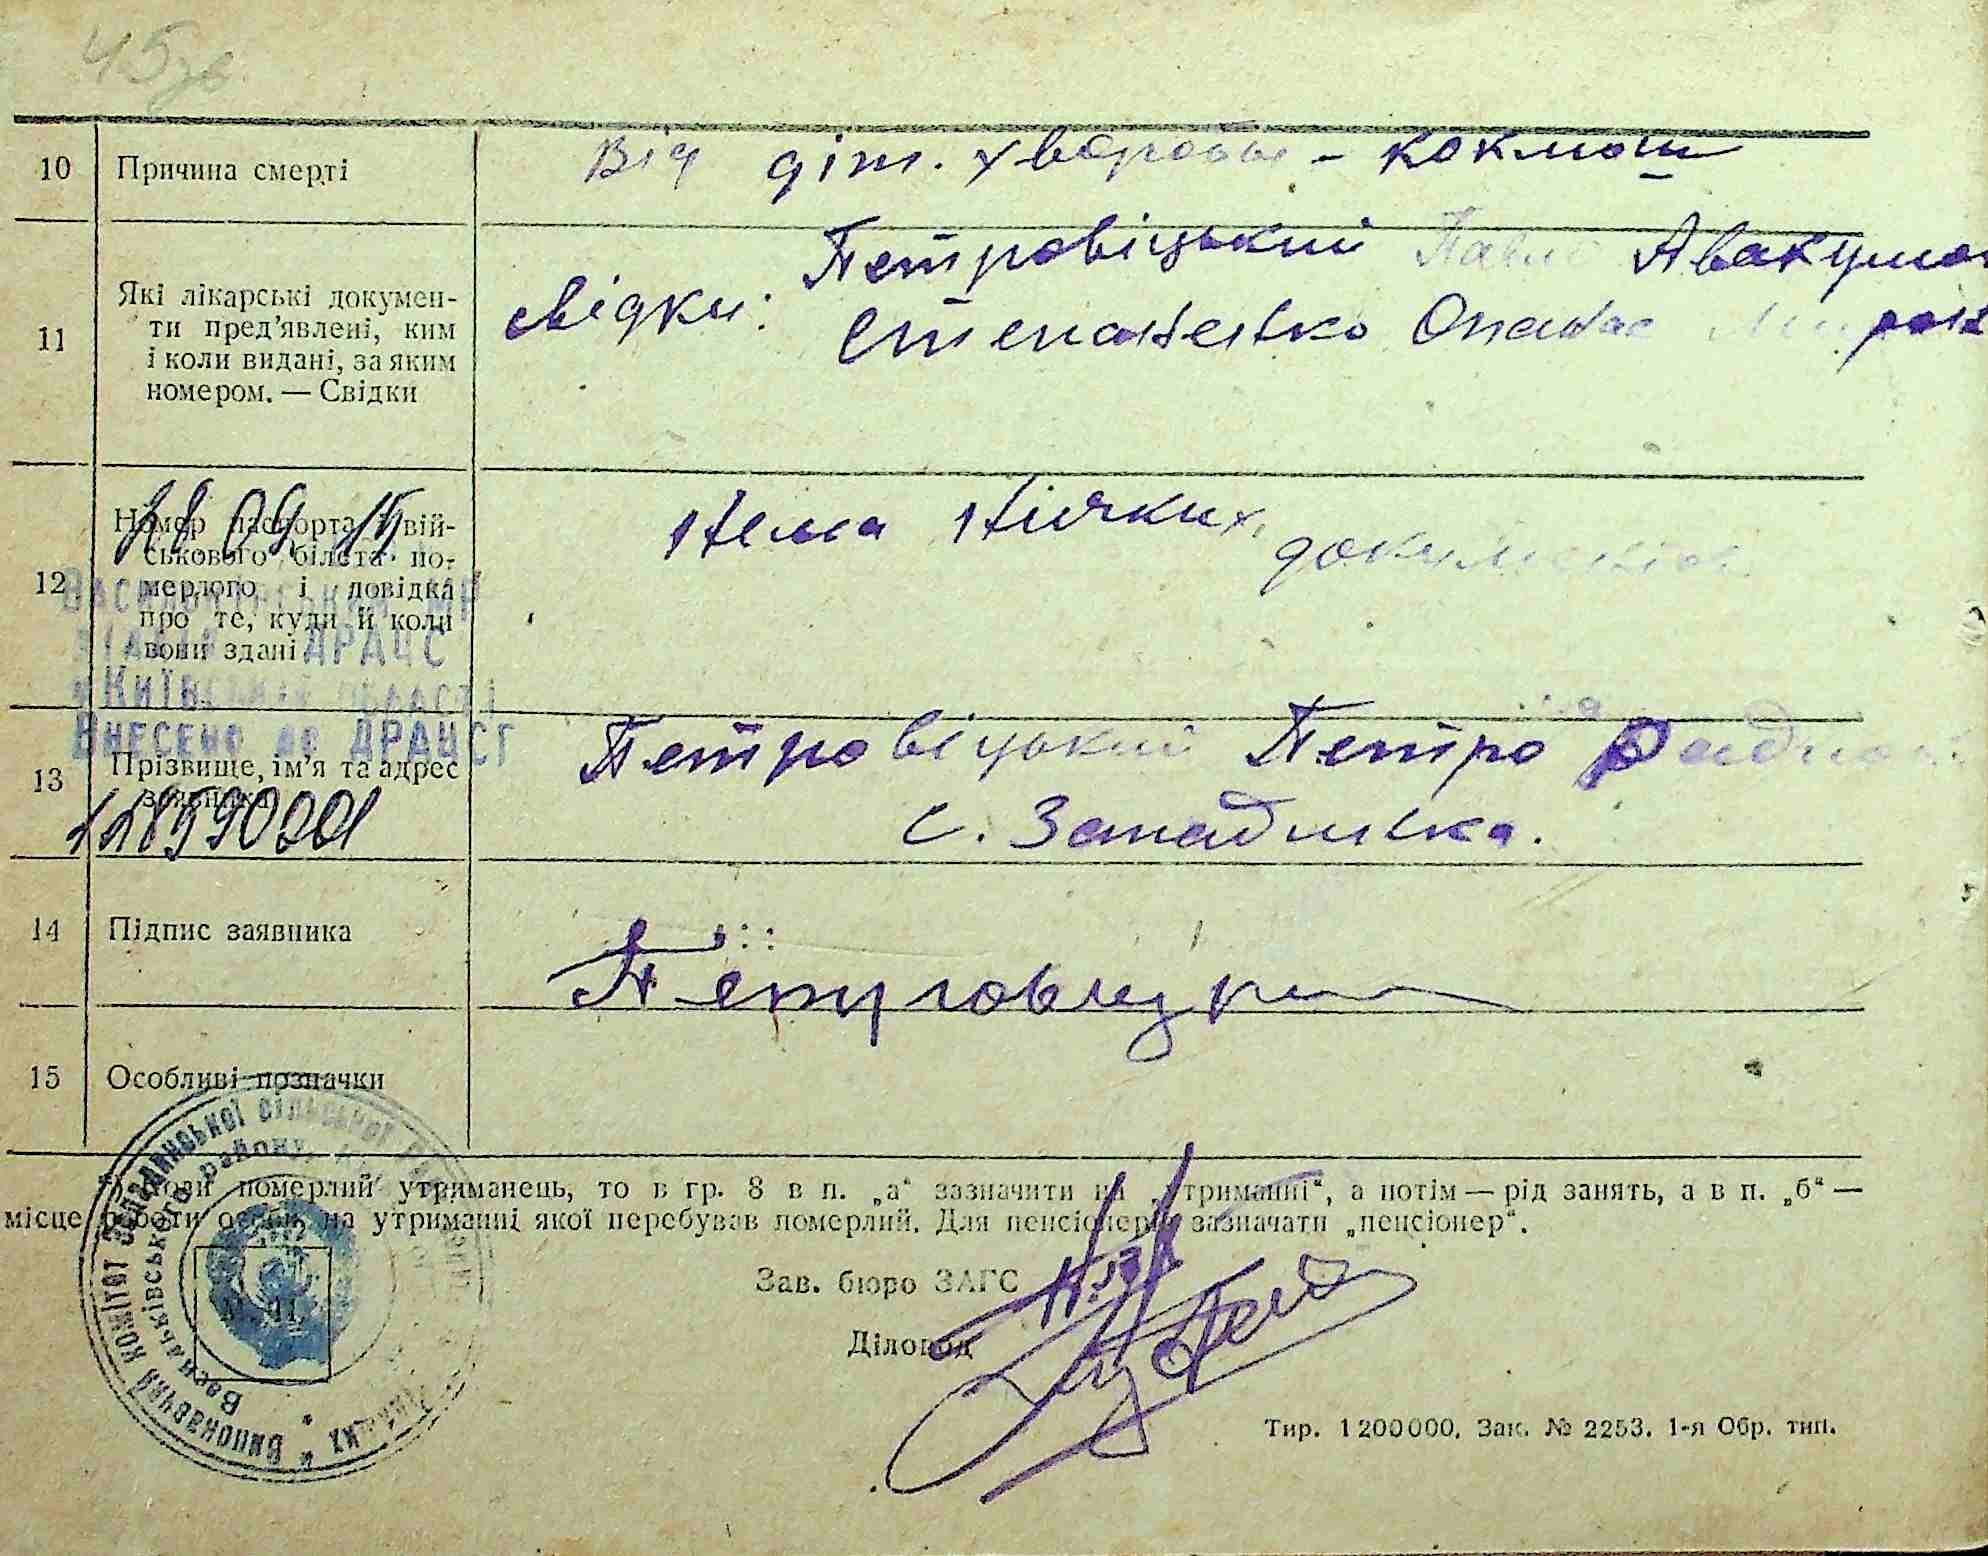 45зв
10 Причина смерті Від діт. хвороби - коклюш
11 Які лікарські докумен-
ти пред'явлені, ким
і коли видані, за яким
номером. — Свідки
свідки: Петровіцький Павло Авакумов
Степаненко Опанас
12 Номер паспорта й вій-
ськового білета по-
мерлого і довідка
про те, куди й коли
вони здані
Нема ніяких документів
Васильківський МР
відділ ДРАЦС
Київській області
Внесено до ДРАЦСГ
13 Прізвище, ім'я та адрес
заявника
Петровіцький Петро
с. Западинка.
14 Підпис заявника Петровіцький
15 Особливі позначки
Коли померлий утриманець, то в гр. 8 в п. „а“ зазначити на „утриманні“, а потім — рід занять, а в п. „б“ —
місце роботи особи, на утриманні якої перебував померлий. Для пенсіонерів зазначати „пенсіонер“.
Зав. бюро ЗАГС
Діловод
Виконавчий комітет Западинської сільської ради
Васильківського району
Тир. 1200000. Зак. № 2253. 1-я Обр. тип.